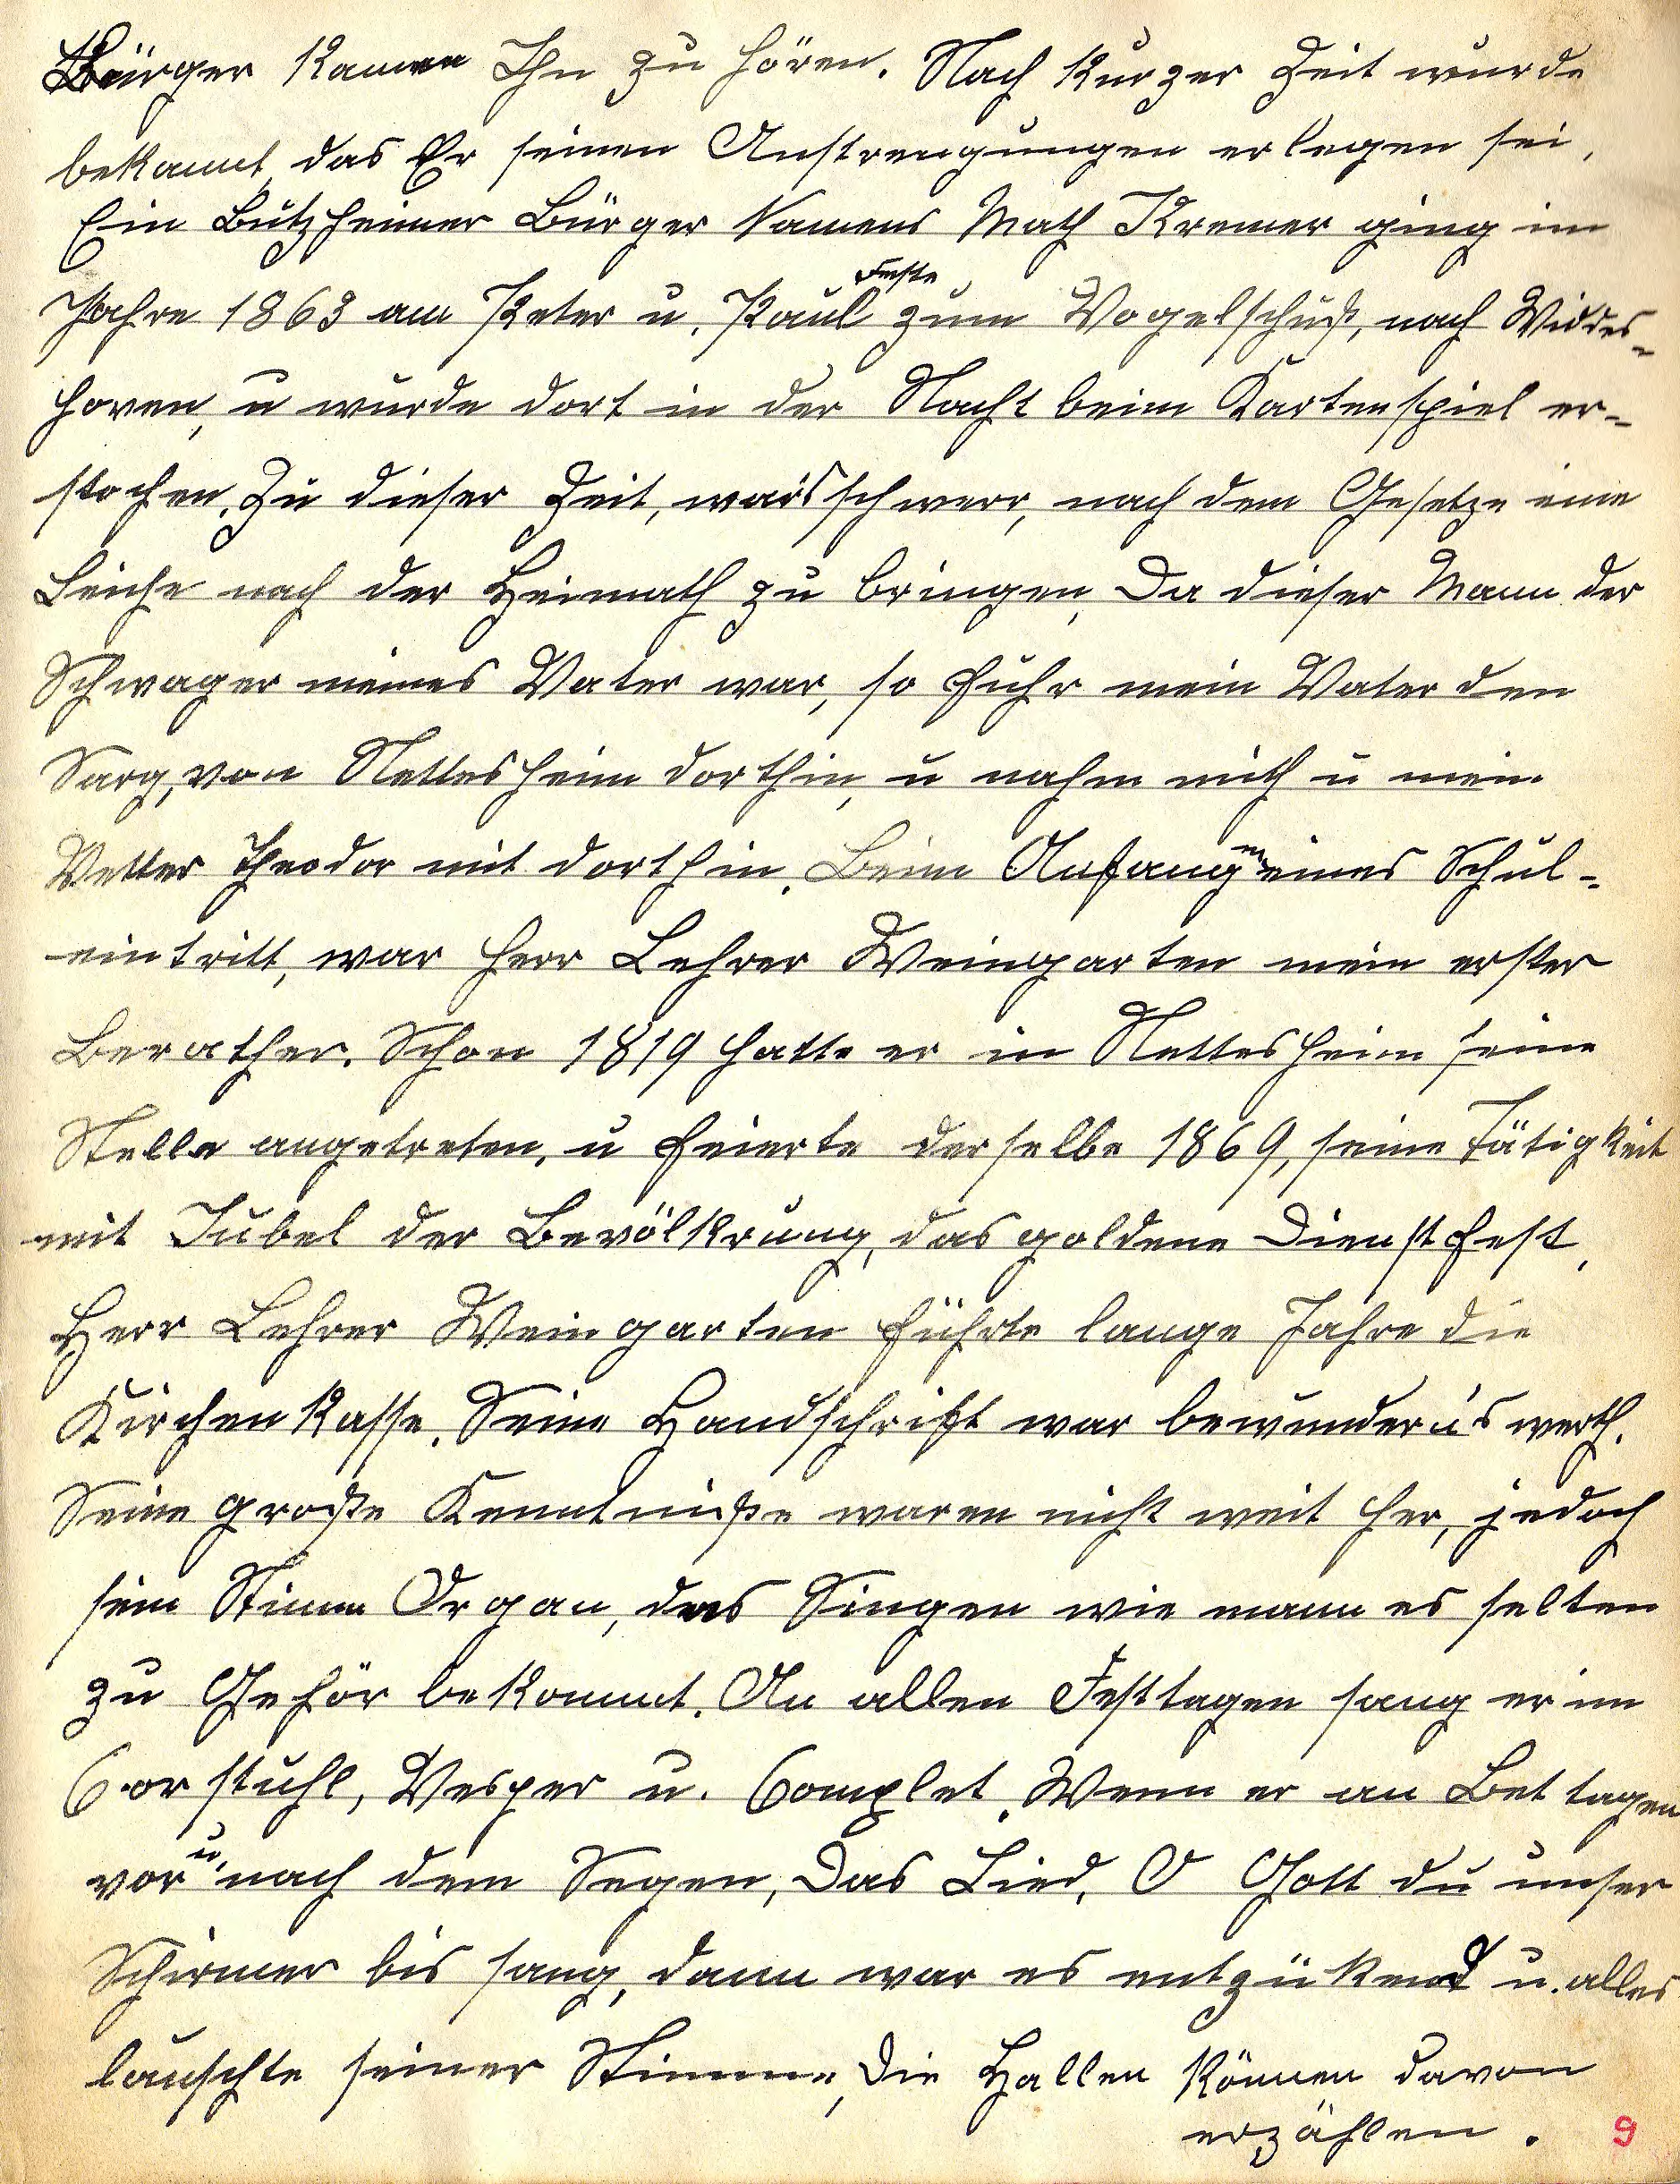 Bürger kamen Ihn zu hören. Nach kurzer Zeit wurde
bekannt, das Er seinen Anstrengungen erlegen sei,
Ein Butzheimer Bürger Namens Math Kremer ging im
Jahre 1863 am Peter u. Paul Feste zum Vogelschuß, nach Widdes-
hoven, u wurde dort in der Nacht beim Kartenspiel er-
stochen. Zu dieser Zeit, war's schwerr, nach dem Gesetze eine
Leiche nach der Heimath zu bringen, Da dieser Mann der
Schwager meines Vater war, so fuhr mein Vater den
Sarg, von Nettesheim dorthin, u nahm mich u mein
Vetter Theodor mit dorthin. Beim Anfang meines Schul-
eintritt, war Herr Lehrer Weingarten mein erster
Berather. Schon 1819 hatte er in Nettesheim seine
Stelle angetreten, u feierte derselbe 1869, seine Tätigkeit
mit Jubel der Bevölkrung, das goldene Dienstfest,
Herr Lehrer Weingarten führte lange Jahre die
Kirchenkasse. Seine Handschrift war bewunderu's werth.
Seine große Kenntniße waren nicht weit her, jedoch
sein Stimm Organ, das Singen wie mann es selten
zu Gehör bekommt. An allen Festtagen sang er im
Corstuhl, Vesper u. Complet. Wenn er an Bettagen
vor u. nach dem Segen, Das Lied, O Gott du unser
Schirmer bis sang, dann war es entzükend u. alles
lauschte seiner Stimme, Die Hallen können davon
erzählen. 9